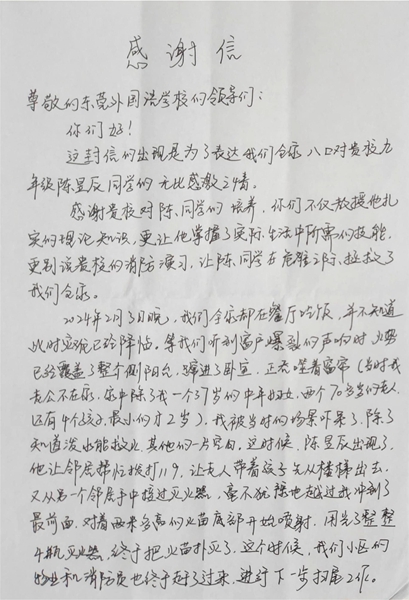 感谢信
尊敬的东莞外国语学校的领导们：
你们好！
这封信的出现是为了表达我们全家八口对贵校九
年级陈昱辰同学的无比感激之情。
感谢贵校对陈同学的培养，你们不仅教授他扎
实的理论知识，更让他掌握了实际生活中所需的技能，
更别说贵校的消防演习，让陈同学在危难之际，拯救了
我们全家。
2024年2月3日晚，我们全家都在餐厅吃饭，并不知道
此时灾难已经降临。等我们听到窗户爆裂的声响时，火势
已经覆盖了整个侧阳台，蹿进了卧室，正吞噬着窗帘（当时我
老公不在家，家中除了我一个37岁的中年妇女，两个70岁的老人，
还有4个孩子，最小的才2岁）。我被当时的场景吓呆了，除了
知道泼水能救火，其他的一片空白。这时候，陈昱辰出现了，
他让邻居拨打119，让老人带着孩子先从楼梯出去，
又从另一个邻居手中接过灭火器，毫不犹豫地越过我冲到了
最前面，对着两米多高的火苗底部开始喷射，用光了整整
4瓶灭火器，终于把火苗扑灭了，这个时候，我们小区的
物业和消防员也终于赶了过来，进行下一步扫尾工作。